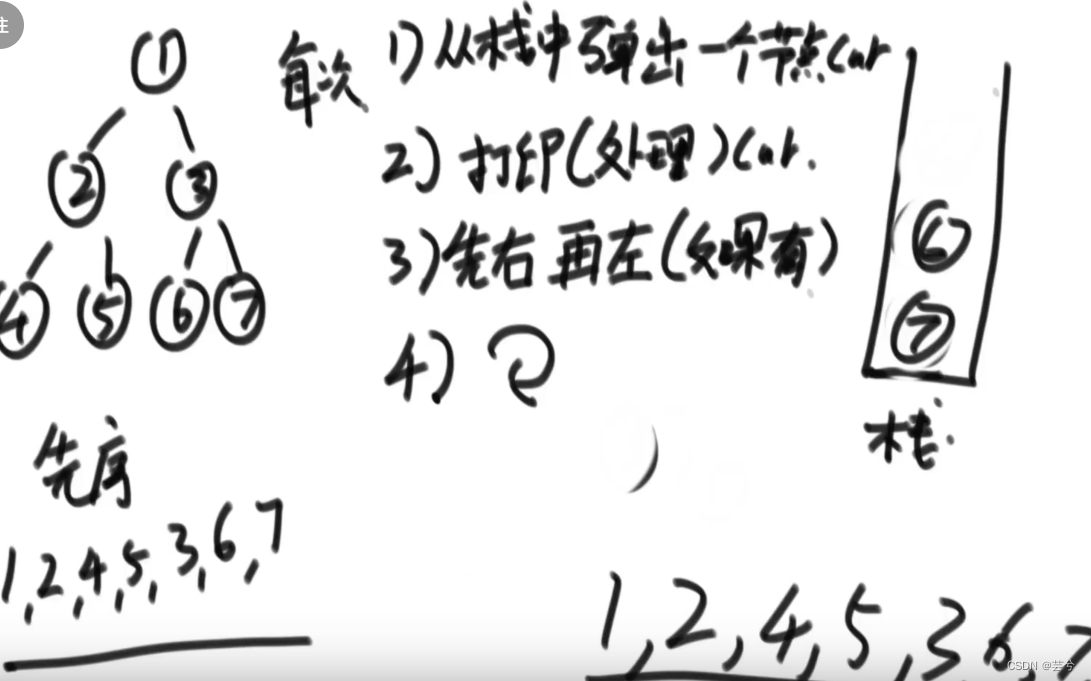 注
①
② ③
④ ⑤ ⑥ ⑦
每次
1) 从栈中弹出一个节点cur
2) 打印(处理)cur.
3) 先右再左(如果有)
4)
⑥
⑦
栈
先序
1,2,4,5,3,6,7
1,2,4,5,3,6,7
CSDN @芸兮